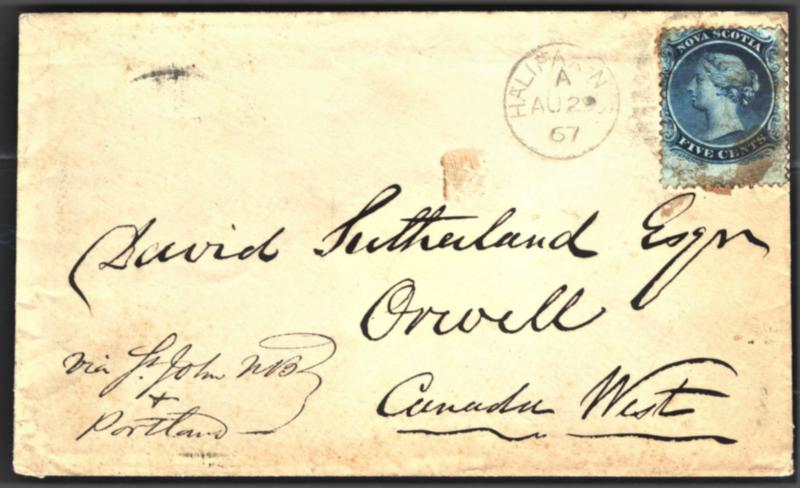 HALIFAX N.S.
A
AU 29
67
NOVA SCOTIA
FIVE CENTS
David Sutherland Esqr
Orwell
Canada West
via St. John NB
+
Portland